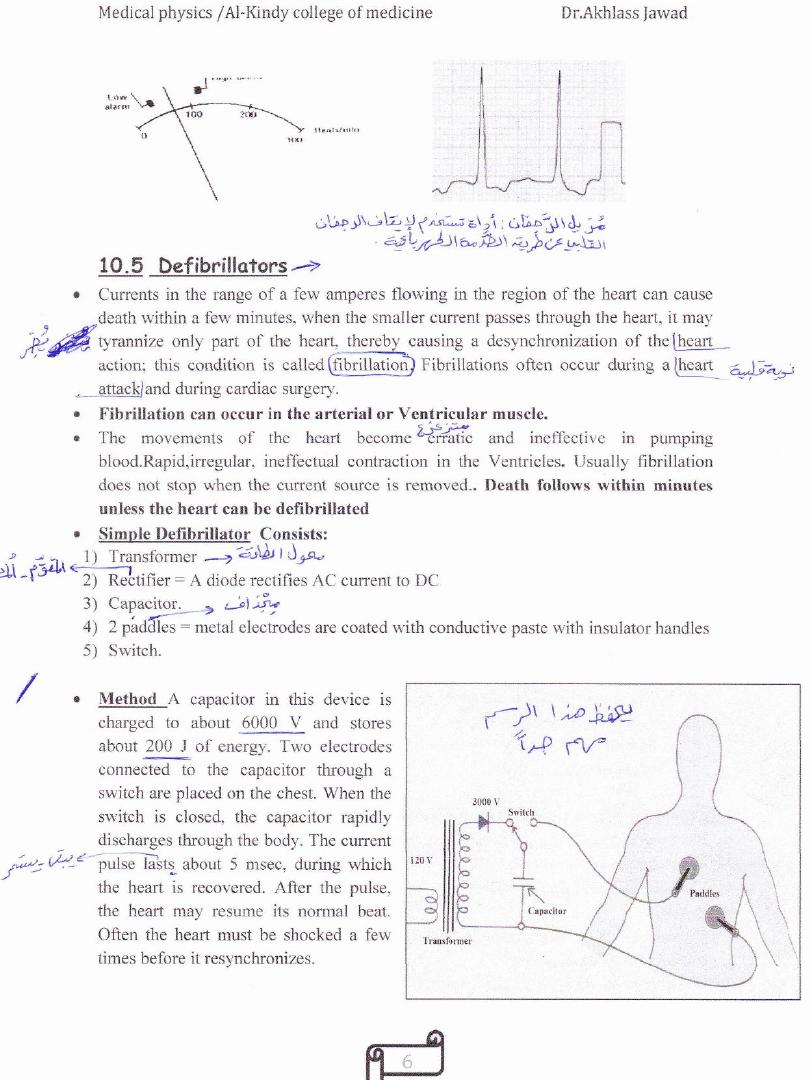 Medical physics /Al-Kindy college of medicine Dr.Akhlass Jawad
Low
alarm
0
100
200
مُزيل الرَّجفان: أداة تستخدم لإيقاف الرجفان
القلبي عن طريق الصَّدمة الكهربائية.
10.5 Defibrillators
• Currents in the range of a few amperes flowing in the region of the heart can cause
death within a few minutes, when the smaller current passes through the heart, it may
tyrannize only part of the heart, thereby causing a desynchronization of the heart
action; this condition is called fibrillation. Fibrillations often occur during a heart نوبة قلبية
attack and during cardiac surgery.
• Fibrillation can occur in the arterial or Ventricular muscle.
• The movements of the heart become erratic and ineffective in pumping
blood.Rapid,irregular, ineffectual contraction in the Ventricles. Usually fibrillation
does not stop when the current source is removed.. Death follows within minutes
unless the heart can be defibrillated
• Simple Defibrillator Consists:
1) Transformer → محول الطاقة
2) Rectifier = A diode rectifies AC current to DC
3) Capacitor.
مِجْذاف
4) 2 paddles = metal electrodes are coated with conductive paste with insulator handles
5) Switch.
• Method A capacitor in this device is
charged to about 6000 V and stores
about 200 J of energy. Two electrodes
connected to the capacitor through a
switch are placed on the chest. When the
switch is closed, the capacitor rapidly
discharges through the body. The current
pulse lasts about 5 msec, during which
the heart is recovered. After the pulse,
the heart may resume its normal beat.
Often the heart must be shocked a few
times before it resynchronizes.
يحفظ هذا الرسم
مهم جداً
3000 V
Switch
120 V
Capacitor
Paddles
Transformer
6